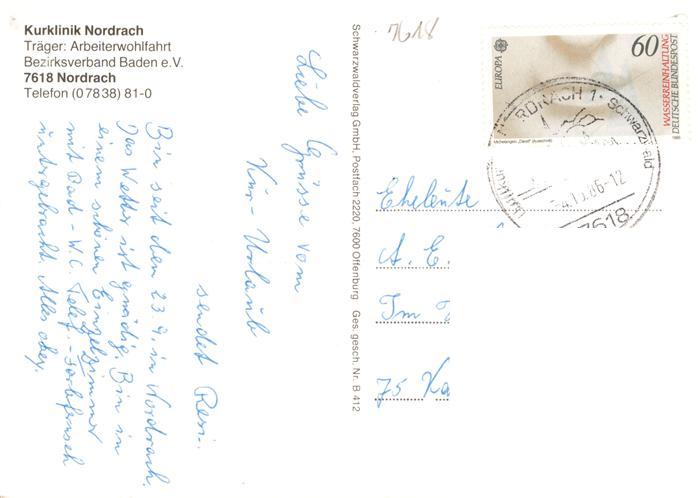 Kurklinik Nordrach
Träger: Arbeiterwohlfahrt
Bezirksverband Baden e.V.
7618 Nordrach
Telefon (0 78 38) 81-0
Liebe Grüsse vom
Kur-Urlaub
sendet Resi.
Bin seit den 23.9. in Nordrach.
Das Wetter ist gnädig. Bin in
einem schönen Einzelzimmer
mit Bad-W.C. Telef.-Farbfernseh
untergebracht. Alles okey.
Schwarzwaldverlag GmbH, Postfach 2220, 7600 Offenburg Ges. gesch. Nr. B 412
7618
EUROPA
60
WASSERREINHALTUNG
DEUTSCHE BUNDESPOST
Michelangelo, "David" (Ausschnitt)
RDRACH 1 · Schwarzwald
86-12
7618
Eheleute
A. E.
Im
75 Ka